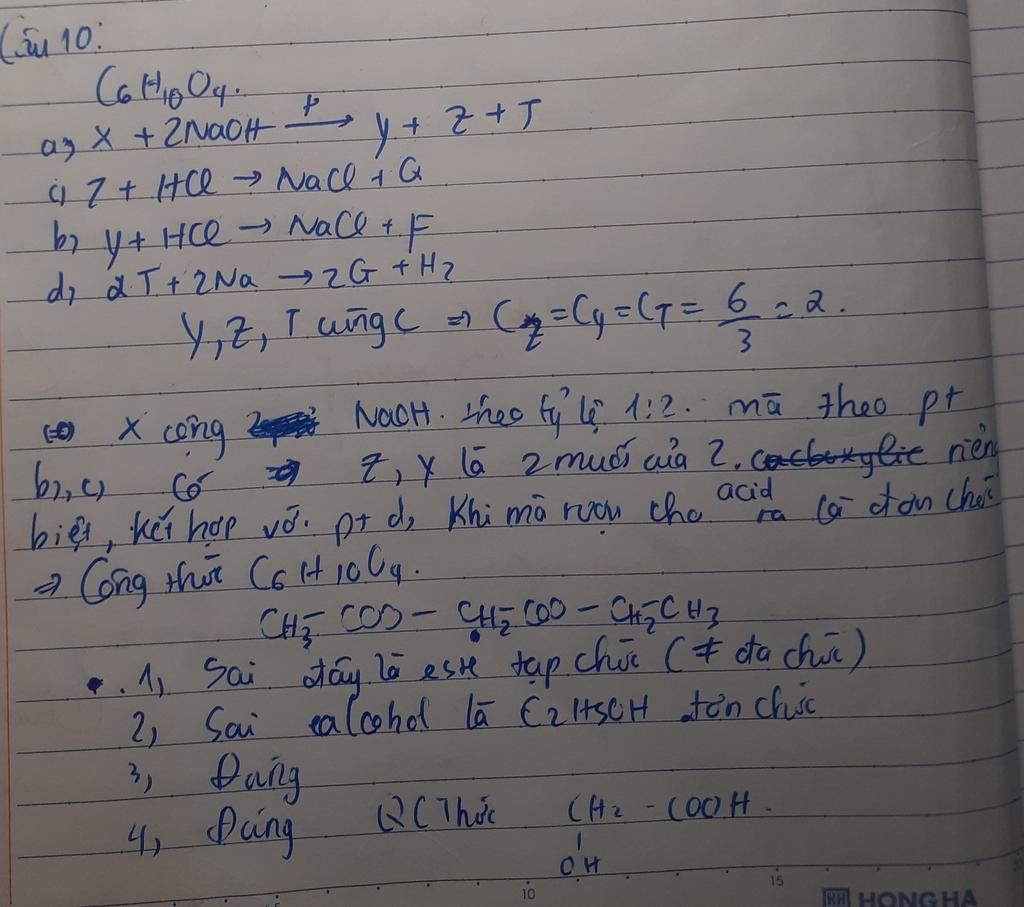 Câu 10:
C6H10O4.
a, X + 2NaOH → Y + Z + T
c, Z + HCl → NaCl + Q
b, Y + HCl → NaCl + F
d, 2T + 2Na → 2G + H2
Y, Z, T cùng C => CZ = CY = CT = 6/3 = 2.
X cộng NaOH. theo tỷ lệ 1:2. mà theo pt
b, c, có => Z, Y là 2 muối của 2. riêng
biệt, kết hợp với pt d, khi mà rượu cho acid ra là đơn chức
=> Công thức C6H10O4.
CH3 - COO - CH2 - COO - CH2 - CH3
1, Sai đây là este tạp chức (≠ đa chức)
2, Sai alcohol là C2H5OH đơn chức
3, Đúng
4, Đúng CH2 - COOH.
OH
10 15
HH HONG HA